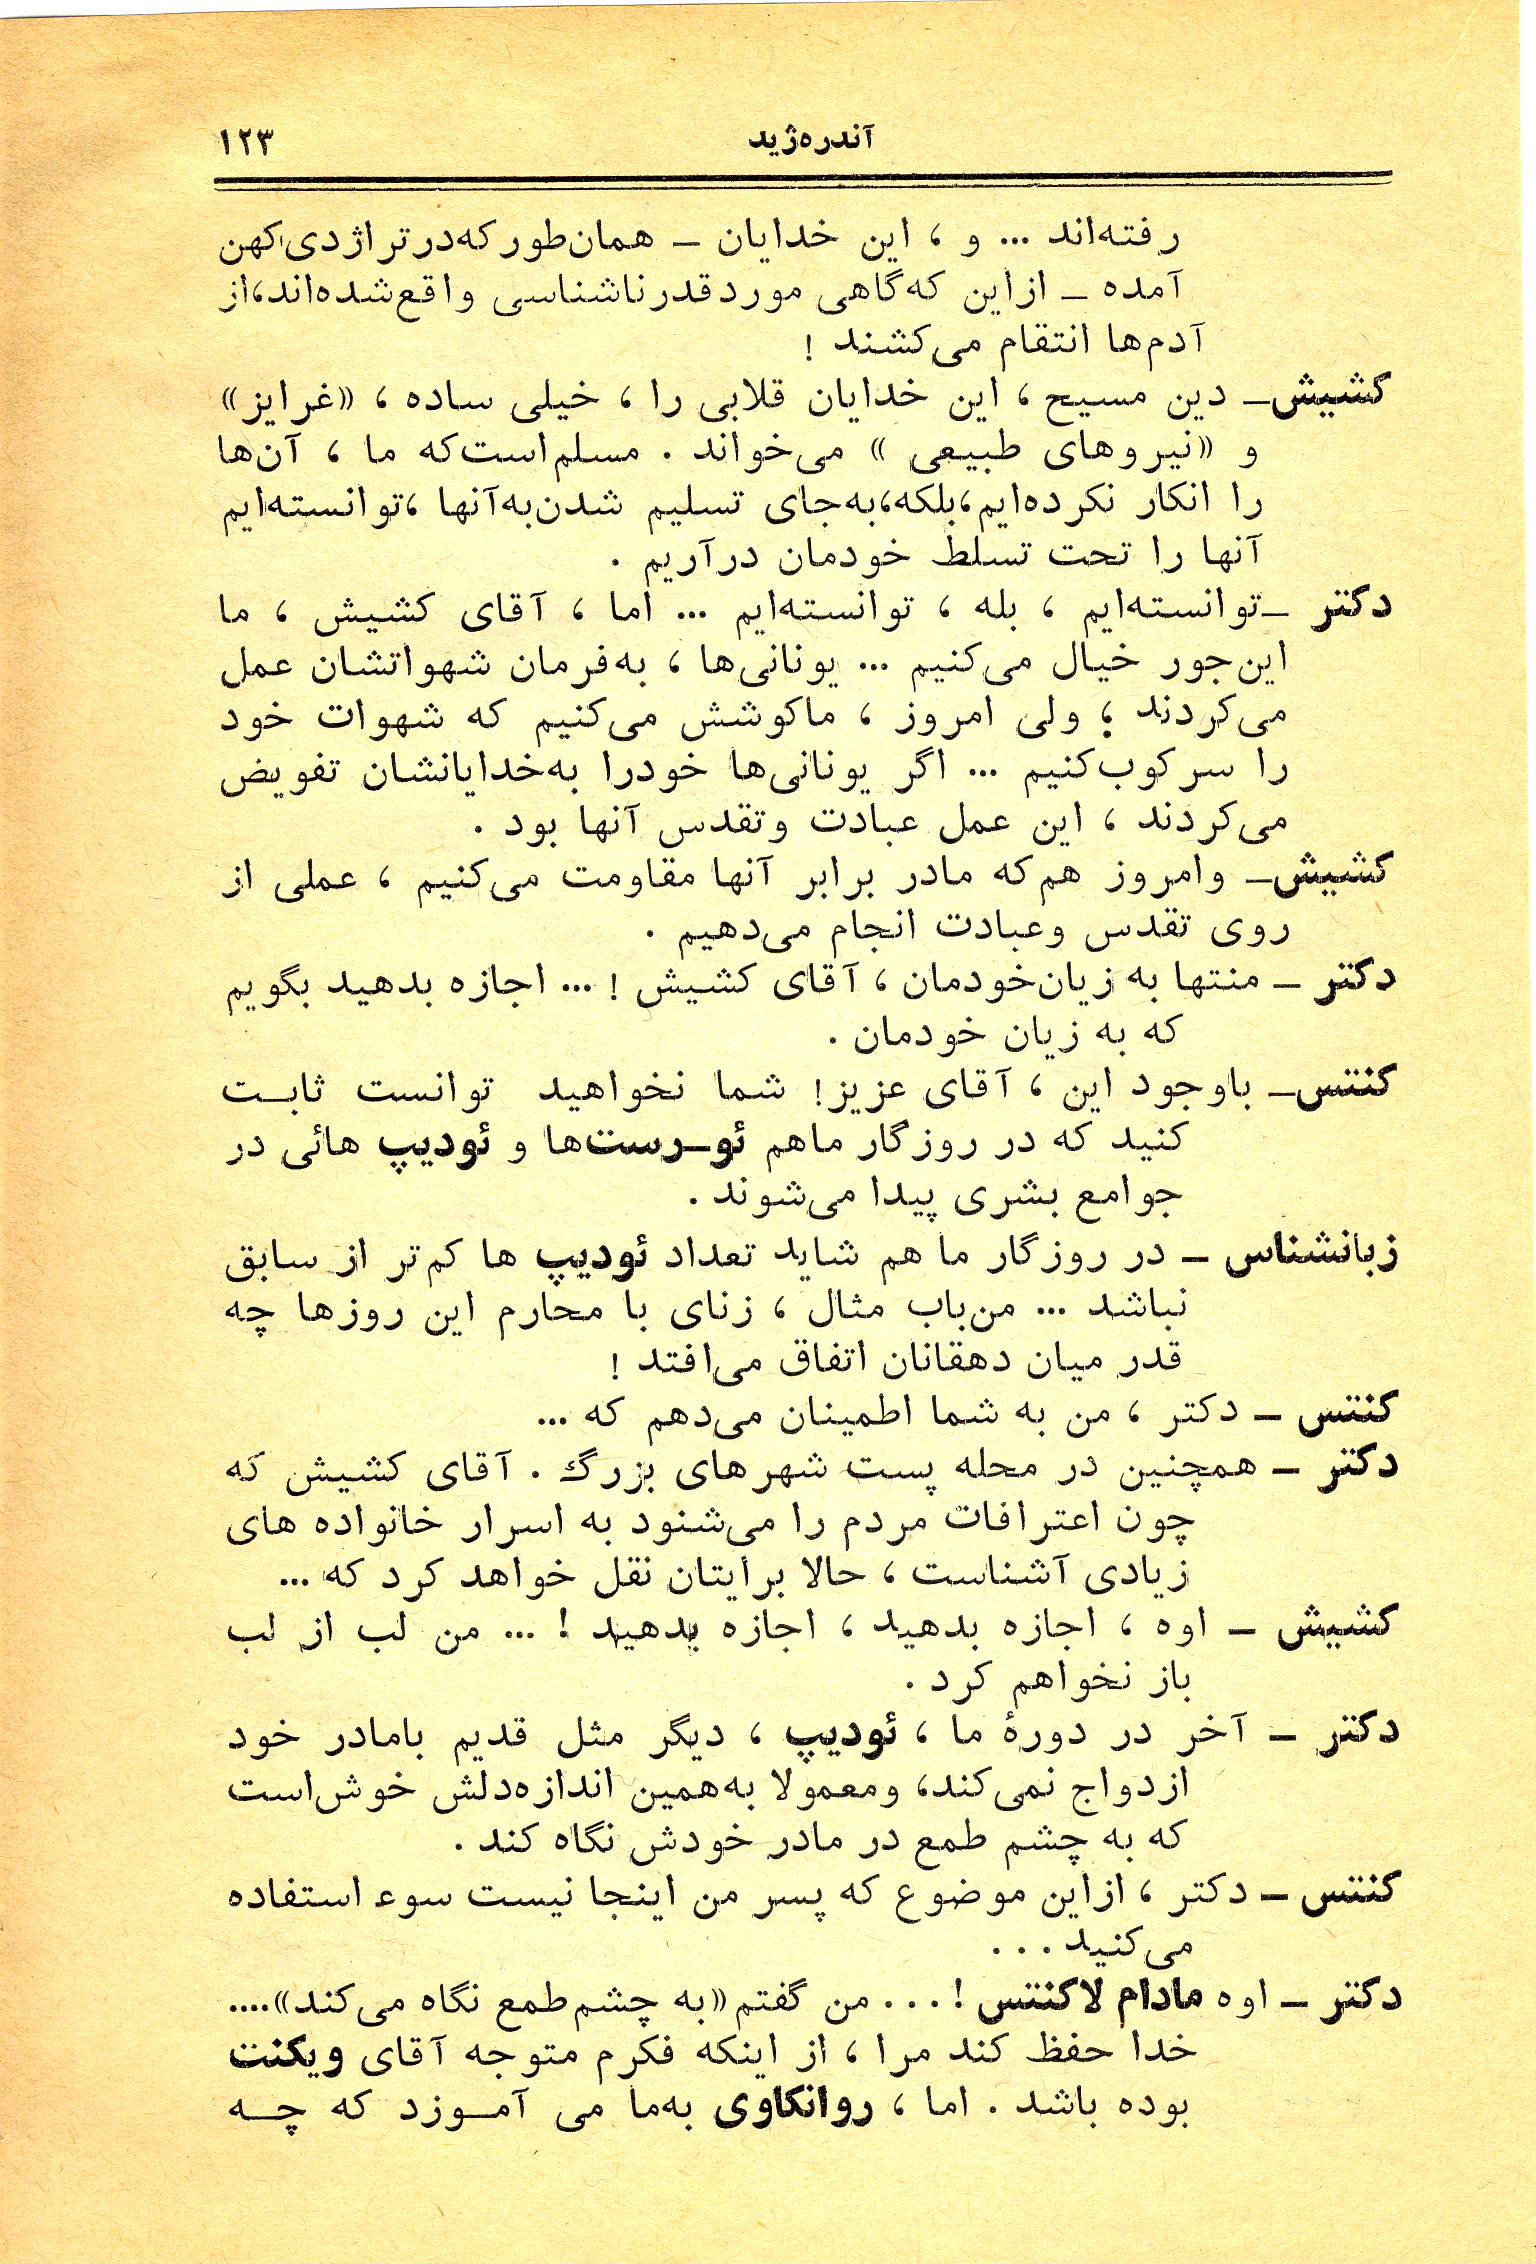 آندره‌ژید ۱۲۳
رفته‌اند ... و ، این خدایان – همان‌طور که در تراژدی کهن
آمده – از این که گاهی مورد قدرناشناسی واقع شده‌اند، از
آدم‌ها انتقام می‌کشند !
کشیش– دین مسیح ، این خدایان قلابی را ، خیلی ساده ، «غرایز»
و «نیروهای طبیعی » می‌خواند . مسلم است که ما ، آن‌ها
را انکار نکرده‌ایم، بلکه، به‌جای تسلیم شدن به آنها ، توانسته‌ایم
آنها را تحت تسلط خودمان درآریم .
دکتر –توانسته‌ایم ، بله ، توانسته‌ایم ... اما ، آقای کشیش ، ما
این‌جور خیال می‌کنیم ... یونانی‌ها ، به‌فرمان شهواتشان عمل
می‌کردند ؛ ولی امروز ، ما کوشش می‌کنیم که شهوات خود
را سرکوب کنیم ... اگر یونانی‌ها خود را به‌خدایانشان تفویض
می‌کردند ، این عمل عبادت و تقدس آنها بود .
کشیش– و امروز هم که ما در برابر آنها مقاومت می‌کنیم ، عملی از
روی تقدس و عبادت انجام می‌دهیم .
دکتر – منتها به زیان خودمان ، آقای کشیش ! ... اجازه بدهید بگویم
که به زیان خودمان .
کنتس– با وجود این ، آقای عزیز! شما نخواهید توانست ثابت
کنید که در روزگار ما هم ئو–رست‌ها و ئودیپ هائی در
جوامع بشری پیدا می‌شوند .
زبانشناس – در روزگار ما هم شاید تعداد ئودیپ ها کم‌تر از سابق
نباشد ... من‌باب مثال ، زنای با محارم این روزها چه
قدر میان دهقانان اتفاق می‌افتد !
کنتس – دکتر ، من به شما اطمینان می‌دهم که ...
دکتر – همچنین در محله پست شهرهای بزرگ . آقای کشیش که
چون اعترافات مردم را می‌شنود به اسرار خانواده های
زیادی آشناست ، حالا برایتان نقل خواهد کرد که ...
کشیش – اوه ، اجازه بدهید ، اجازه بدهید ! ... من لب از لب
باز نخواهم کرد .
دکتر – آخر در دورهٔ ما ، ئودیپ ، دیگر مثل قدیم با مادر خود
ازدواج نمی‌کند، و معمولا به‌همین اندازه دلش خوش است
که به چشم طمع در مادر خودش نگاه کند .
کنتس – دکتر ، از این موضوع که پسر من اینجا نیست سوء استفاده
می‌کنید . . .
دکتر – اوه مادام لاکنتس ! . . . من گفتم «به چشم طمع نگاه می‌کند»....
خدا حفظ کند مرا ، از اینکه فکرم متوجه آقای ویکنت
بوده باشد . اما ، روانکاوی به‌ما می آموزد که چه